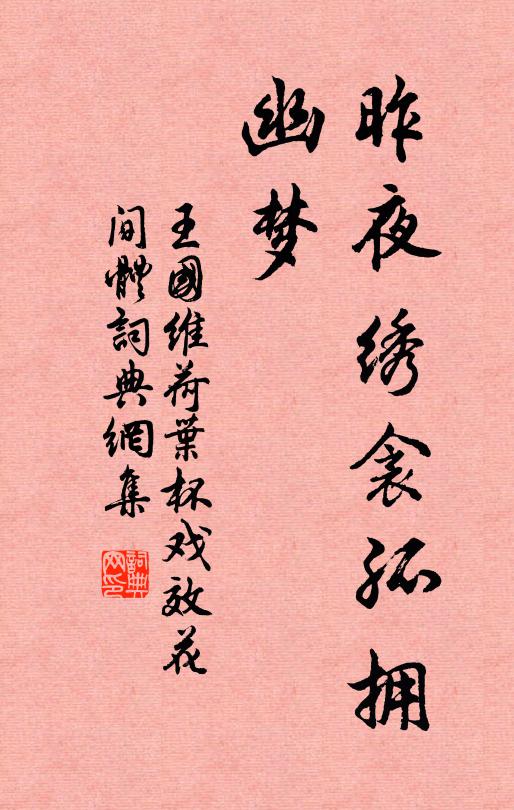 昨夜绣衾孤拥
幽梦
王國维荷葉杯戏效花
间體詞典網集
詞典网印